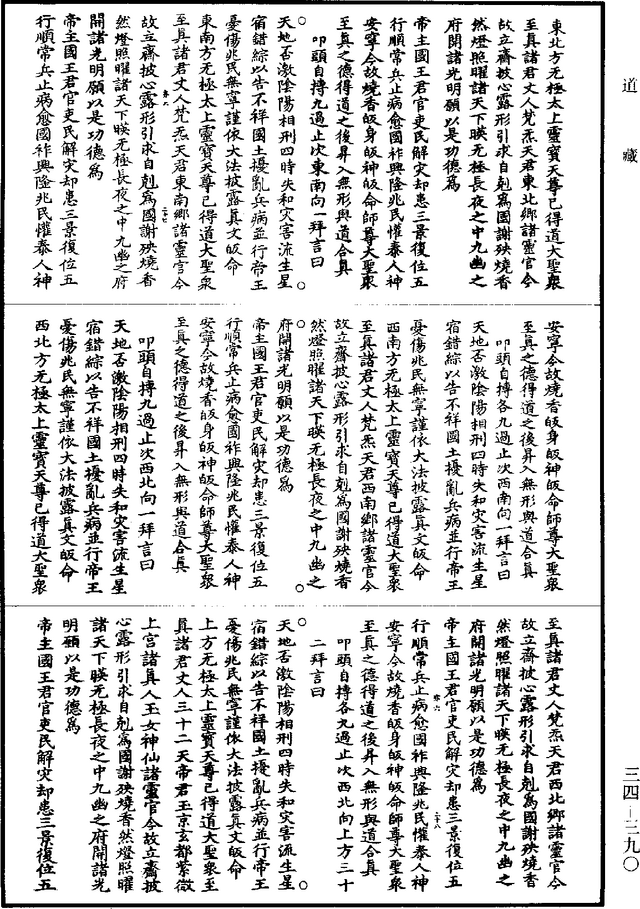 道藏
東北方无極太上靈寶天尊已得道大聖衆
至真諸君丈人梵炁天君東北鄉諸靈官今
故立齋披心露形引求自剋爲國謝殃燒香
然燈照曜諸天下暎无極長夜之中九幽之
府開諸光明願以是功德爲
帝主國王君官吏民解灾却患三景復位五
行順常兵止病愈國祚興隆兆民懽泰人神
安寧今故燒香皈身皈神皈命師尊大聖衆
至真之德得道之後昇入無形與道合真
叩頭自搏九過止次東南向一拜言曰
天地否激陰陽相刑四時失和灾害流生星
宿錯綜以告不祥國土擾亂兵病並行帝王
憂傷兆民無寧謹依大法披露真文皈命
東南方无極太上靈寶天尊已得道大聖衆
至真諸君丈人梵炁天君東南鄉諸靈官今
故立齋披心露形引求自剋爲國謝殃燒香
然燈照曜諸天下暎无極長夜之中九幽之府
開諸光明願以是功德爲
帝主國王君官吏民解灾却患三景復位五
行順常兵止病愈國祚興隆兆民懽泰人神
安寧今故燒香皈身皈神皈命師尊大聖衆
至真之德得道之後昇入無形與道合真
叩頭自搏各九過止次西南向一拜言曰
天地否激陰陽相刑四時失和灾害流生星
宿錯綜以告不祥國土擾亂兵病並行帝王
憂傷兆民無寧謹依大法披露真文皈命
西南方无極太上靈寶天尊已得道大聖衆
至真諸君丈人梵炁天君西南鄉諸靈官今
故立齋披心露形引求自剋爲國謝殃燒香
然燈照曜諸天下暎无極長夜之中九幽之
府開諸光明願以是功德爲
帝主國王君官吏民解灾却患三景復位五
行順常兵止病愈國祚興隆兆民懽泰人神
安寧今故燒香皈身皈神皈命師尊大聖衆
至真之德得道之後昇入無形與道合真
叩頭自搏九過止次西北向一拜言曰
天地否激陰陽相刑四時失和灾害流生星
宿錯綜以告不祥國土擾亂兵病並行帝王
憂傷兆民無寧謹依大法披露真文皈命
西北方无極太上靈寶天尊已得道大聖衆
至真諸君丈人梵炁天君西北鄉諸靈官今
故立齋披心露形引求自剋爲國謝殃燒香
然燈照曜諸天下暎无極長夜之中九幽之
府開諸光明願以是功德爲
帝主國王君官吏民解灾却患三景復位五
行順常兵止病愈國祚興隆兆民懽泰人神
安寧今故燒香皈身皈神皈命師尊大聖衆
至真之德得道之後昇入無形與道合真
叩頭自搏各九過止次西北向上方三十
二拜言曰
天地否激陰陽相刑四時失和灾害流生星
宿錯綜以告不祥國土擾亂兵病並行帝王
憂傷兆民無寧謹依大法披露真文皈命
上方无極太上靈寶天尊已得道大聖衆至
真諸君丈人三十二天帝君玉京玄都紫微
上宮諸真人玉女神仙諸靈官今故立齋披
心露形引求自剋爲國謝殃燒香然燈照曜
諸天下暎无極長夜之中九幽之府開諸光
明願以是功德爲
帝主國王君官吏民解灾却患三景復位五
三四—三九〇